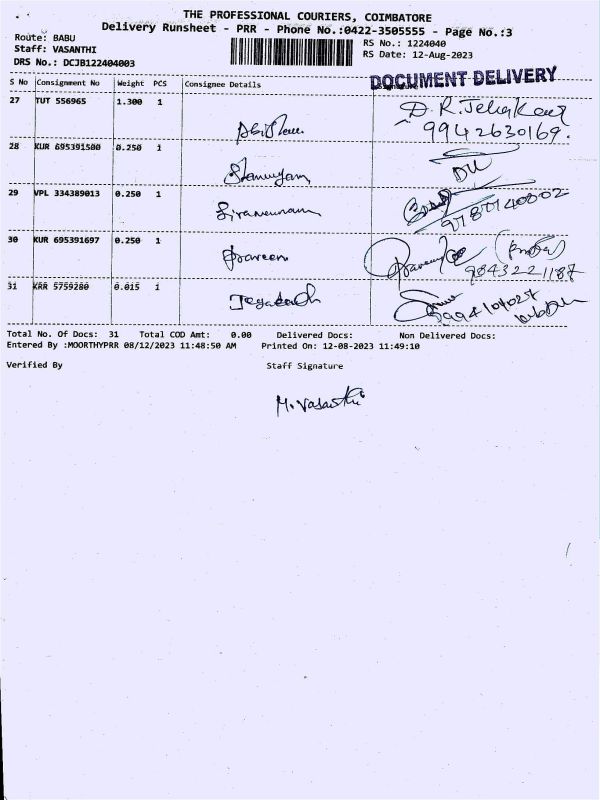 THE PROFESSIONAL COURIERS, COIMBATORE
Delivery Runsheet - PRR - Phone No.:0422-3505555 - Page No.:3
Route: BABU
Staff: VASANTHI
DRS No.: DCJB122404003
RS No.: 1224040
RS Date: 12-Aug-2023
DOCUMENT DELIVERY
S No Consignment No Weight PCS Consignee Details Signature
27 TUT 556965 1.300 1
9942630169.
28 KUR 695391500 0.250 1
Shanmugam
29 VPL 334389013 0.250 1
Siraneunam
9787740802
30 KUR 695391697 0.250 1
Praveen
9843221187
31 KRR 5759280 0.015 1
9994101027
Total No. Of Docs: 31 Total COD Amt: 0.00 Delivered Docs: Non Delivered Docs:
Entered By :MOORTHYPRR 08/12/2023 11:48:50 AM Printed On: 12-08-2023 11:49:10
Verified By Staff Signature
M. Vasanthi